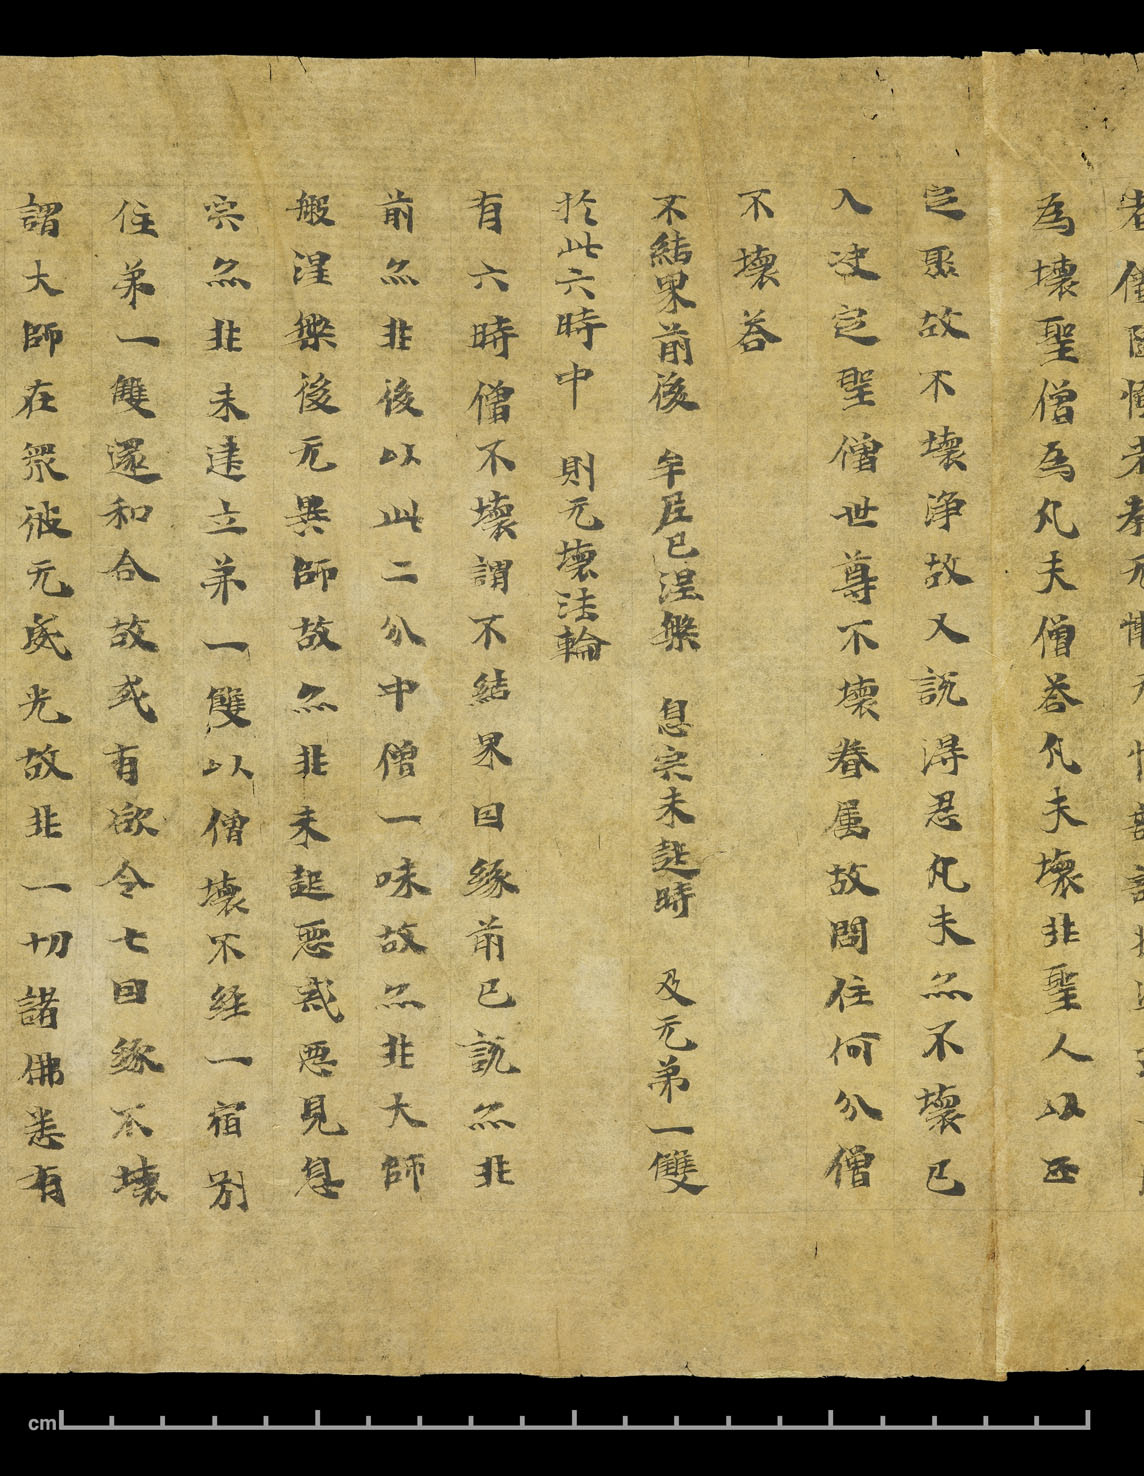 為壞聖僧為凡夫僧荅凡夫壞非聖人以正
定聚故不壞淨故又說得忍凡夫亦不壞已
入决定聖僧世尊不壞眷属故問住何分僧
不壞荅
不結果前後　牟尼已涅槃　息宗未起時　及无弟一雙
於此六時中　則无壞法輪
有六時僧不壞謂不結界因緣前已說亦非
前亦非後以此二分中僧一味故亦非大師
般涅槃後无異師故亦非未起惡惑惡見息
宗亦非未建立弟一雙以僧壞不經一宿別
住弟一雙還和合故或有欲令七因緣不壞
謂大師在衆彼无威光故非一切諸佛悉有
cm